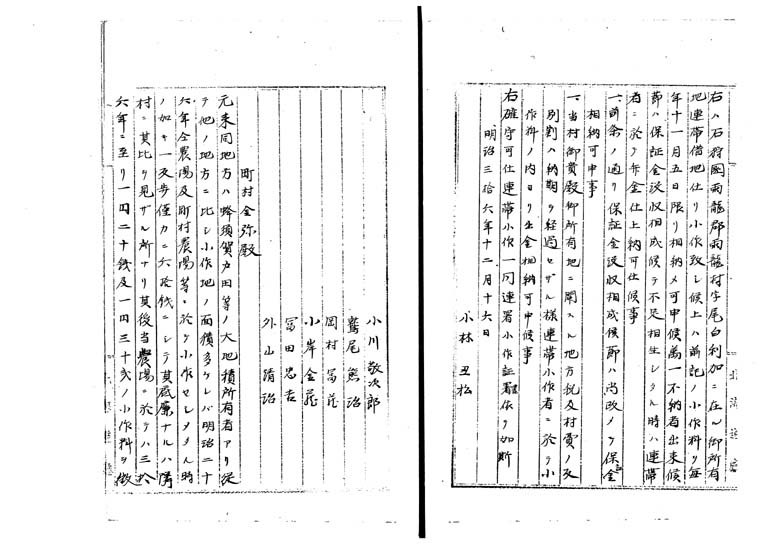 右ハ石狩國雨龍郡雨龍村字尾白利加ニ在ル御所有
地連帯借地仕リ小作致シ候上ハ前記ノ小作料ヲ毎
年十一月五日限リ相納メ可申候萬一不納者出来候
節ハ保証金没収相成候テ不足相生シタル時ハ連帯
者ニ於テ弁金仕上納可仕候事
一、前条ノ通リ保証金没収相成候節ハ尚改メテ保証金
相納可申事
一、当村御貴殿御所有地ニ関スル地方税及村費ノ反
別割ハ納期ヲ経過セザル様連帯小作者ニ於テ小
作料ノ内ヨリ出金相納可申候事
右確守可仕連帯小作一同連署小作証書依テ如斯
明治三拾六年十二月十六日
小林丑松
小川敬次郎
鷲尾熊治
岡村冨茂
小岸金茂
冨田忠吉
外山清治
町村金弥殿
元来同地方ハ蜂須賀戸田等ノ大地積所有者アリ従
テ他ノ地方ニ比シ小作地ノ面積多ケレバ明治二十
六年全農場及町村農場等ニ於テ小作セシメタル時
ノ如キ一反歩僅カニ六拾銭ニシテ其低廉ナルハ隣
村ニ其比ヲ見ザル所ナリ其後当農場ニ於テハ三十
六年ニ至リ一円二十銭及一円三十銭ノ小作料ヲ徴